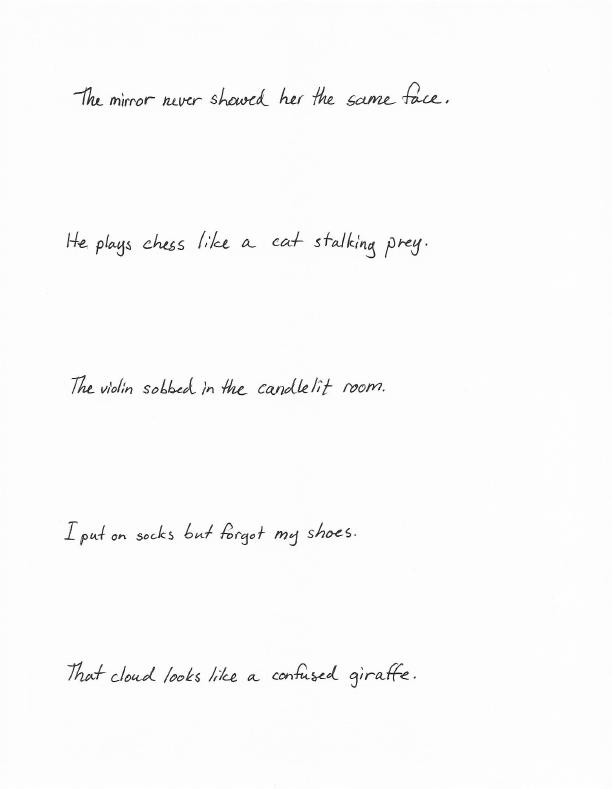 The mirror never showed her the same face.
He plays chess like a cat stalking prey.
The violin sobbed in the candlelit room.
I put on socks but forgot my shoes.
That cloud looks like a confused giraffe.